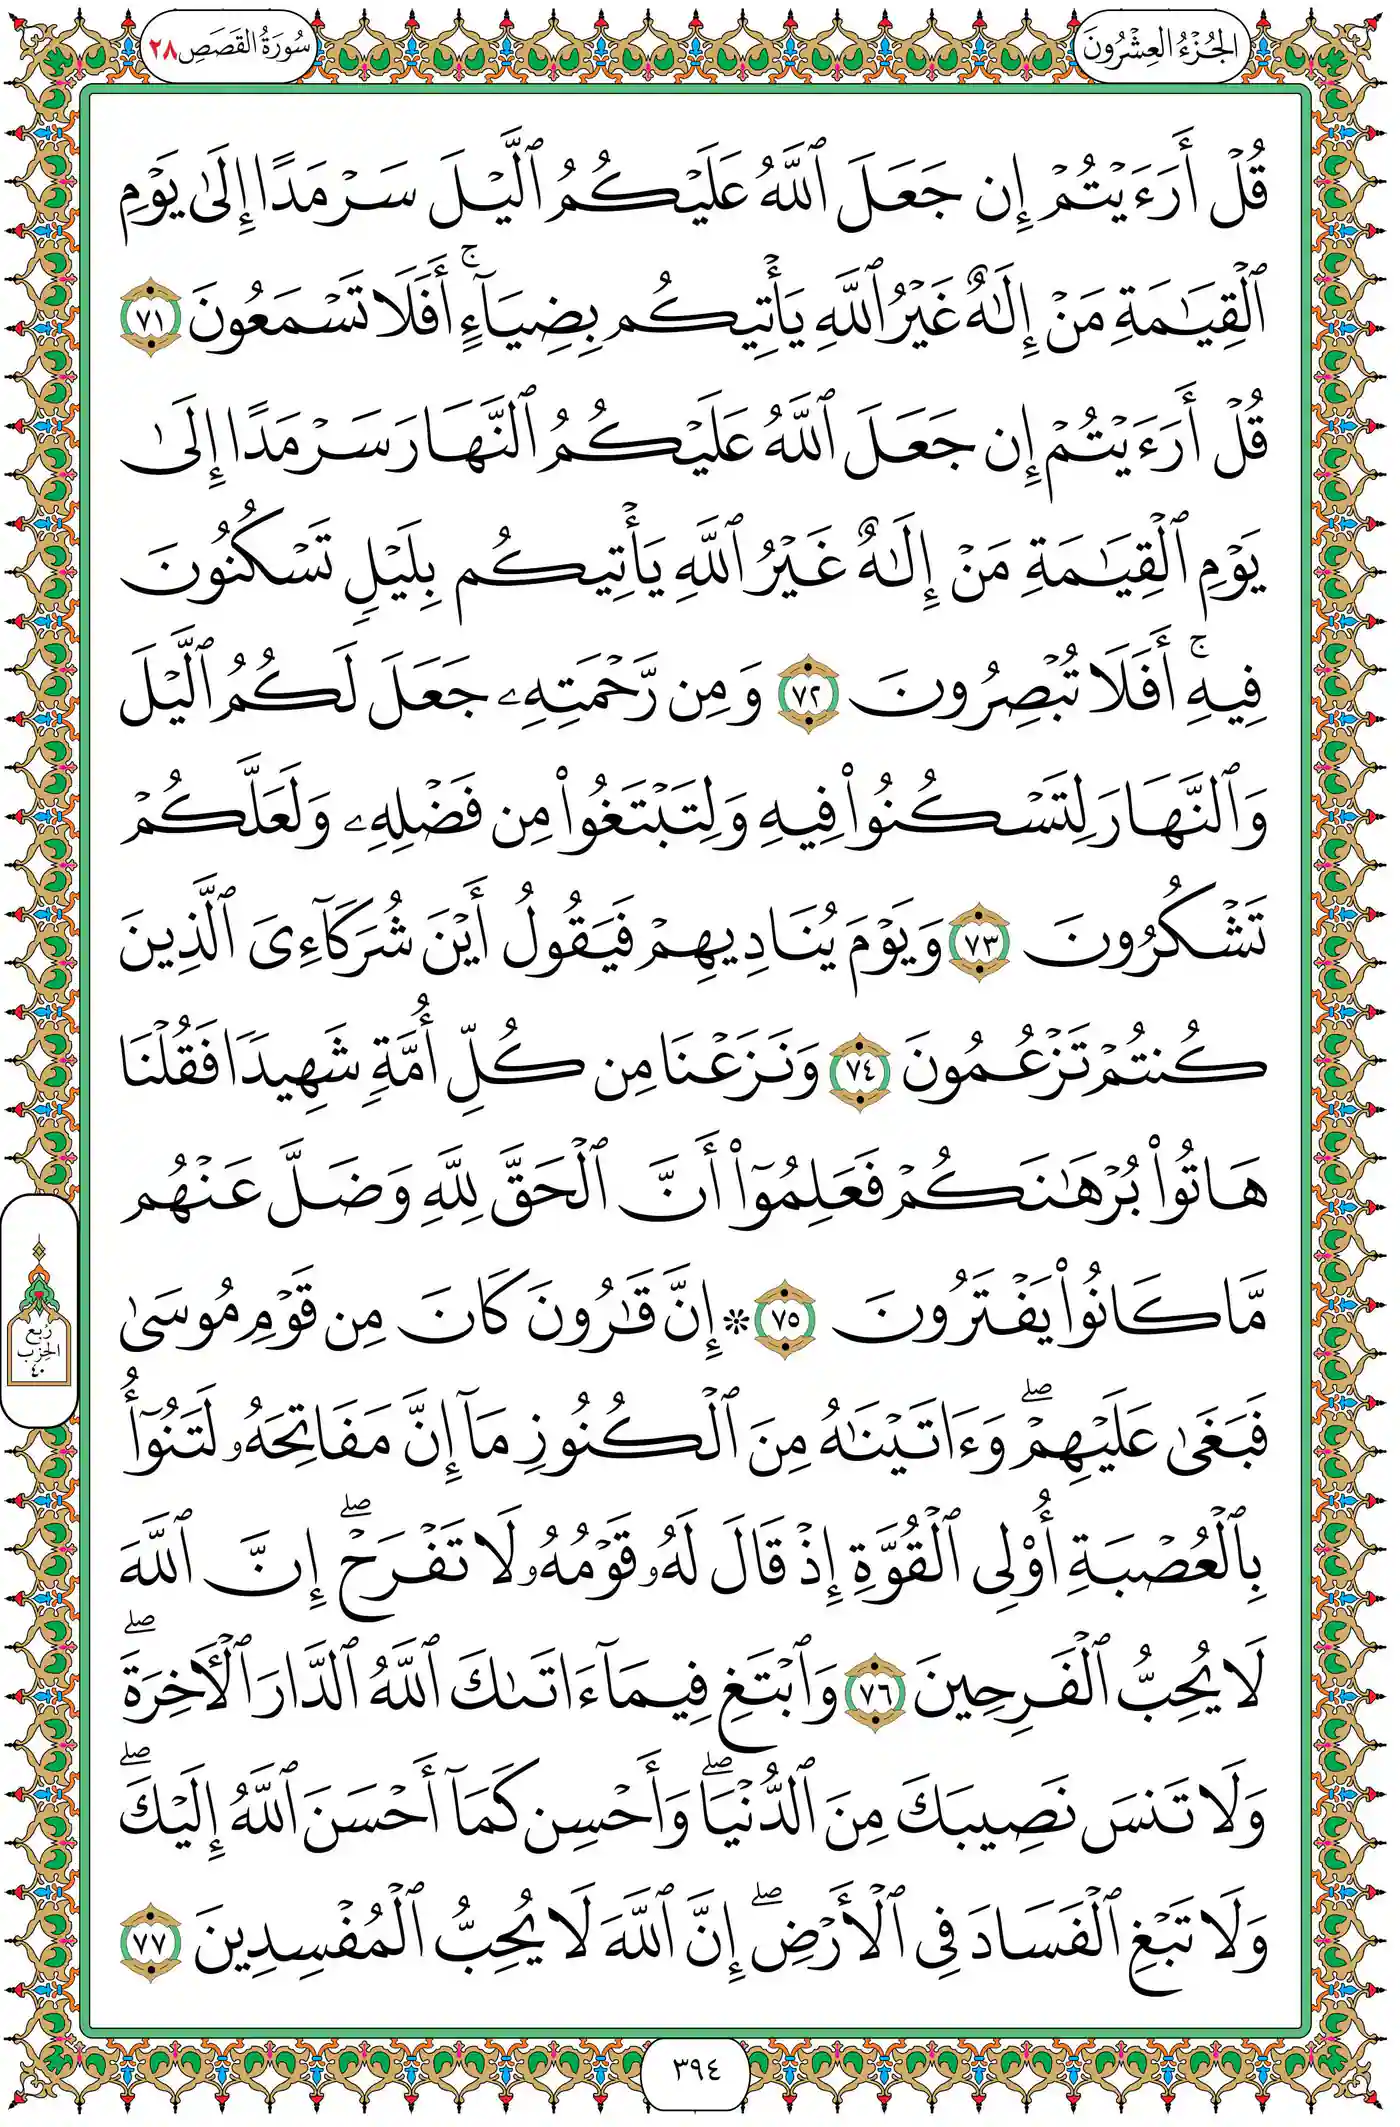 الجُزْءُ العِشْرُونَ
سُورَةُ القَصَصِ ٢٨
قُلْ أَرَءَيْتُمْ إِن جَعَلَ ٱللَّهُ عَلَيْكُمُ ٱلَّيْلَ سَرْمَدًا إِلَىٰ يَوْمِ
ٱلْقِيَـٰمَةِ مَنْ إِلَـٰهٌ غَيْرُ ٱللَّهِ يَأْتِيكُم بِضِيَآءٍ ۚ أَفَلَا تَسْمَعُونَ ٧١
قُلْ أَرَءَيْتُمْ إِن جَعَلَ ٱللَّهُ عَلَيْكُمُ ٱلنَّهَارَ سَرْمَدًا إِلَىٰ
يَوْمِ ٱلْقِيَـٰمَةِ مَنْ إِلَـٰهٌ غَيْرُ ٱللَّهِ يَأْتِيكُم بِلَيْلٍ تَسْكُنُونَ
فِيهِ ۚ أَفَلَا تُبْصِرُونَ ٧٢ وَمِن رَّحْمَتِهِۦ جَعَلَ لَكُمُ ٱلَّيْلَ
وَٱلنَّهَارَ لِتَسْكُنُوا۟ فِيهِ وَلِتَبْتَغُوا۟ مِن فَضْلِهِۦ وَلَعَلَّكُمْ
تَشْكُرُونَ ٧٣ وَيَوْمَ يُنَادِيهِمْ فَيَقُولُ أَيْنَ شُرَكَآءِىَ ٱلَّذِينَ
كُنتُمْ تَزْعُمُونَ ٧٤ وَنَزَعْنَا مِن كُلِّ أُمَّةٍ شَهِيدًا فَقُلْنَا
هَاتُوا۟ بُرْهَـٰنَكُمْ فَعَلِمُوٓا۟ أَنَّ ٱلْحَقَّ لِلَّهِ وَضَلَّ عَنْهُم
مَّا كَانُوا۟ يَفْتَرُونَ ٧٥ ۞ إِنَّ قَـٰرُونَ كَانَ مِن قَوْمِ مُوسَىٰ
فَبَغَىٰ عَلَيْهِمْ ۖ وَءَاتَيْنَـٰهُ مِنَ ٱلْكُنُوزِ مَآ إِنَّ مَفَاتِحَهُۥ لَتَنُوٓأُ
بِٱلْعُصْبَةِ أُو۟لِى ٱلْقُوَّةِ إِذْ قَالَ لَهُۥ قَوْمُهُۥ لَا تَفْرَحْ ۖ إِنَّ ٱللَّهَ
لَا يُحِبُّ ٱلْفَرِحِينَ ٧٦ وَٱبْتَغِ فِيمَآ ءَاتَىٰكَ ٱللَّهُ ٱلدَّارَ ٱلْـَٔاخِرَةَ ۖ
وَلَا تَنسَ نَصِيبَكَ مِنَ ٱلدُّنْيَا ۖ وَأَحْسِن كَمَآ أَحْسَنَ ٱللَّهُ إِلَيْكَ ۖ
وَلَا تَبْغِ ٱلْفَسَادَ فِى ٱلْأَرْضِ ۖ إِنَّ ٱللَّهَ لَا يُحِبُّ ٱلْمُفْسِدِينَ ٧٧
رُبع
الحِزب
٤٠
٣٩٤